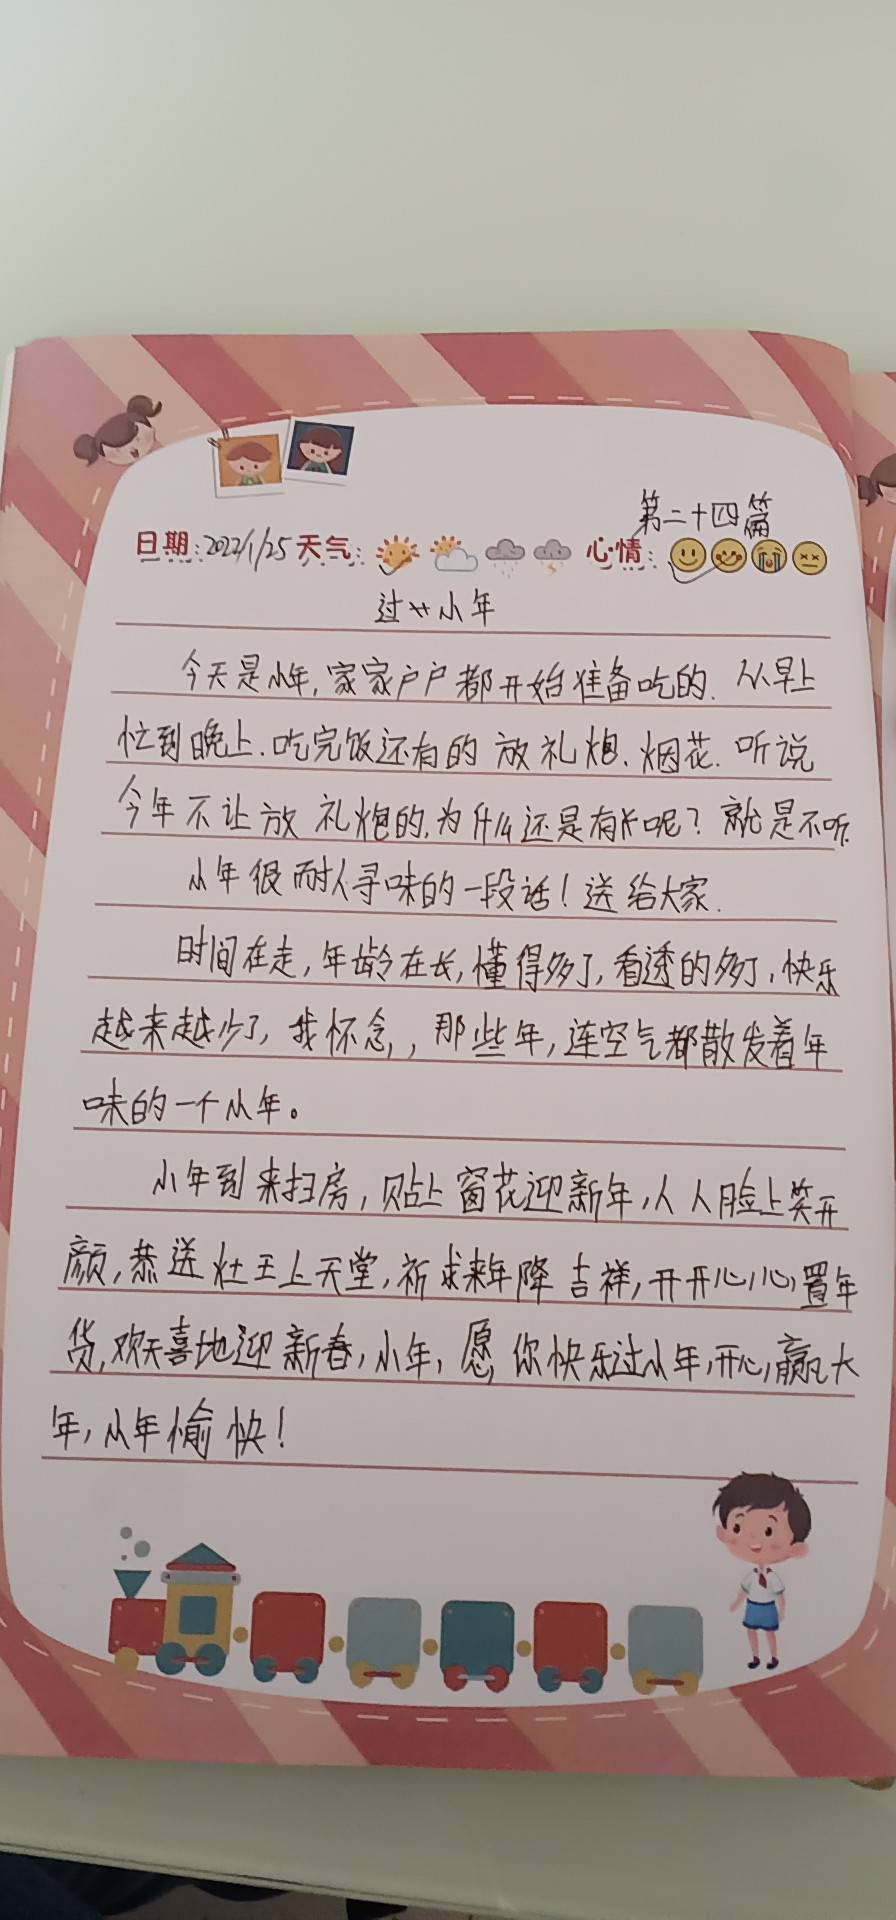 第二十四篇
日期:2022/1/25 天气: 心情:
过小年
今天是小年,家家户户都开始准备吃的.从早上
忙到晚上.吃完饭还有的放礼炮、烟花.听说
今年不让放礼炮的,为什么还是有人呢?就是不听.
小年很耐人寻味的一段话!送给大家.
时间在走,年龄在长,懂得多了,看透的多了,快乐
越来越少了,我怀念,那些年,连空气都散发着年
味的一个小年。
小年到来扫房,贴上窗花迎新年,人人脸上笑开
颜,恭送灶王上天堂,祈求来年降吉祥,开开心心置年
货,欢天喜地迎新春,小年,愿你快乐过小年,开心赢大
年,小年愉快!